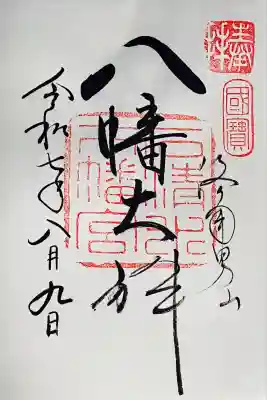 奉拝
國寶
男山
八幡大神
石清水
八幡宮
令和七年八月九日